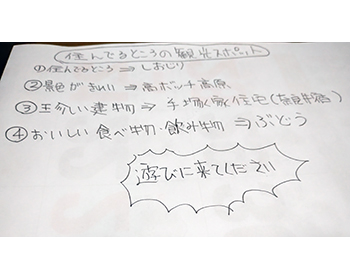 住んでるところの観光スポット
①住んでるところ⇒しおじり
②景色がきれい⇒高ボッチ高原
③王多しい建物⇒手塚家住宅(奈良井宿)
④おいしい食べ物・飲み物⇒ぶどう
遊びに来てください